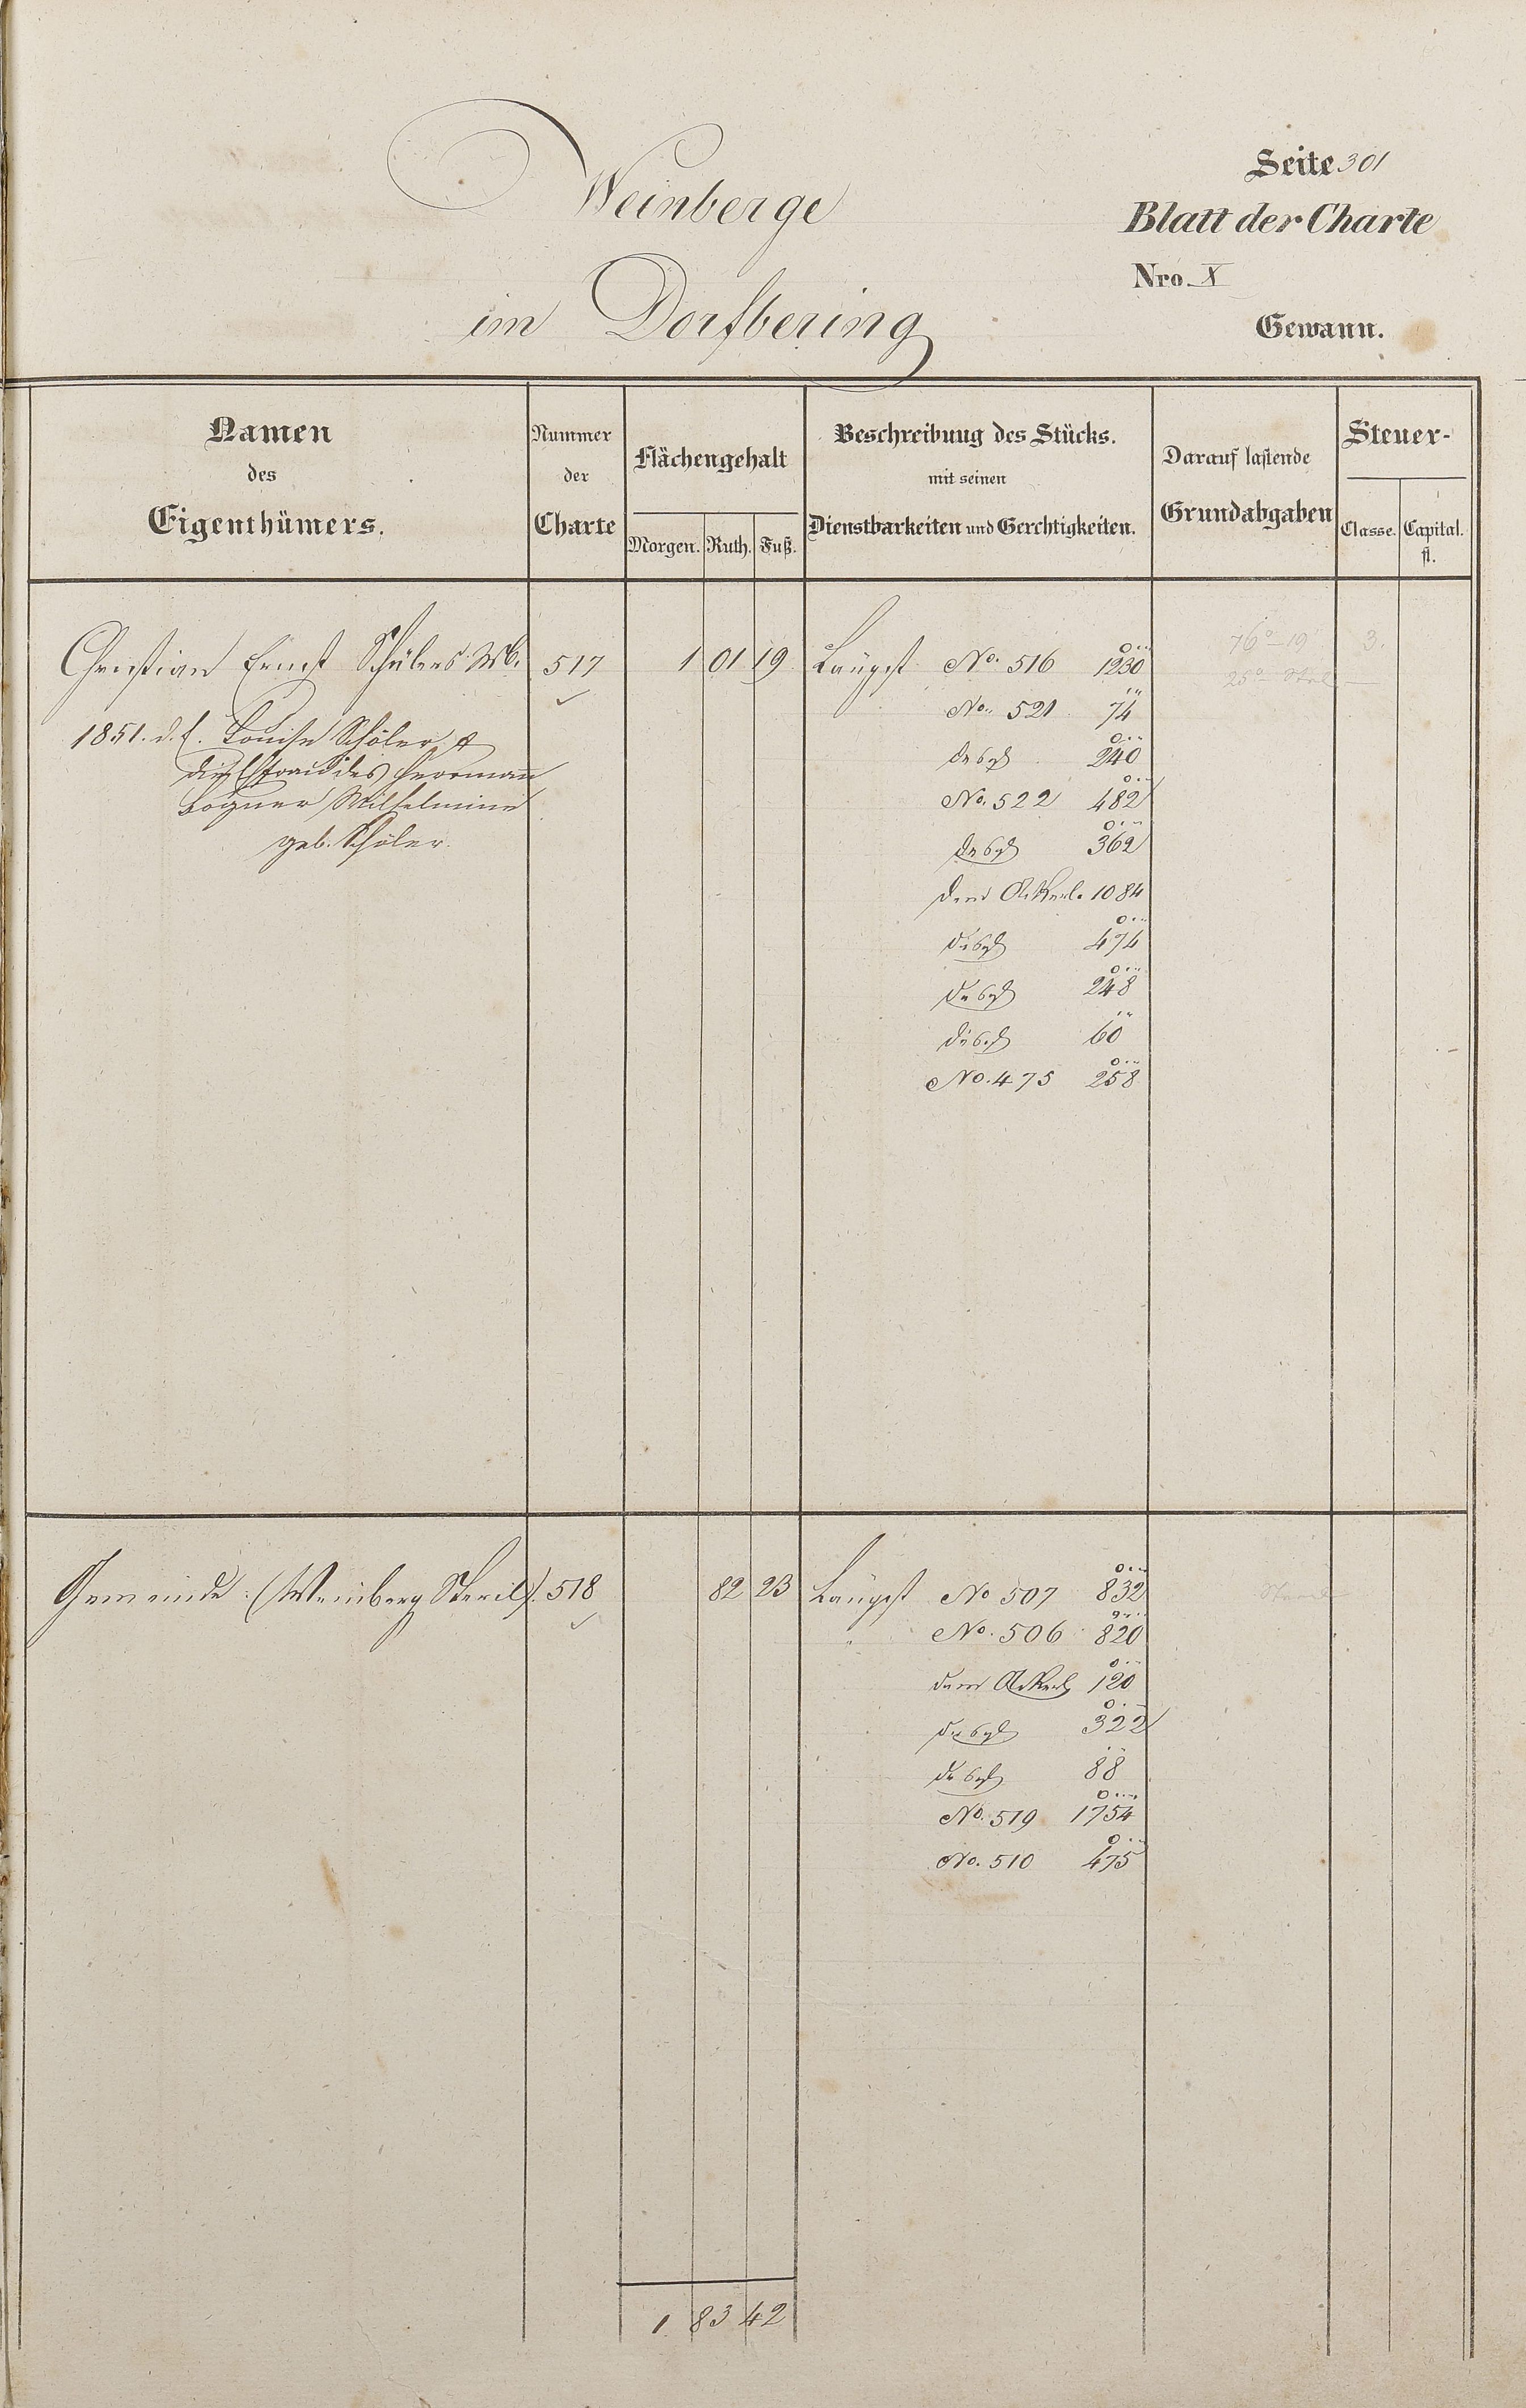 Weinberge
im Dorfbering
Seite 301
Blatt der Charte
Nro. X
Gewann.
Namen
des
Eigenthümers.
Nummer
der
Charte
Flächengehalt
Morgen. Ruth. Fuß.
Beschreibung des Stücks.
mit seinen
Dienstbarkeiten und Gerechtigkeiten.
Darauf lastende
Grundabgaben
Steuer-
Classe. Capital.
fl.
Christian Ernst Schülers Wb. 517 1 01 19 Längst No. 516 1230 76° 19' 3.
No. 521 74 25°
1851. d. E. Louise Schöler &
desgl 240
die Ehefrau des Herrmann
No. 522 482
Bogner Wilhelmine
geb. Schöler.
desgl 362
dem 1084
desgl 474
desgl 248
desgl 60
No. 475 258
Gemeinde (Weinberg Steril). 518 82 23 Längst No 507 832
" No. 506 820
dem 120
desgl 322
desgl 88
No. 519 1754
No. 510 475
1 83 42